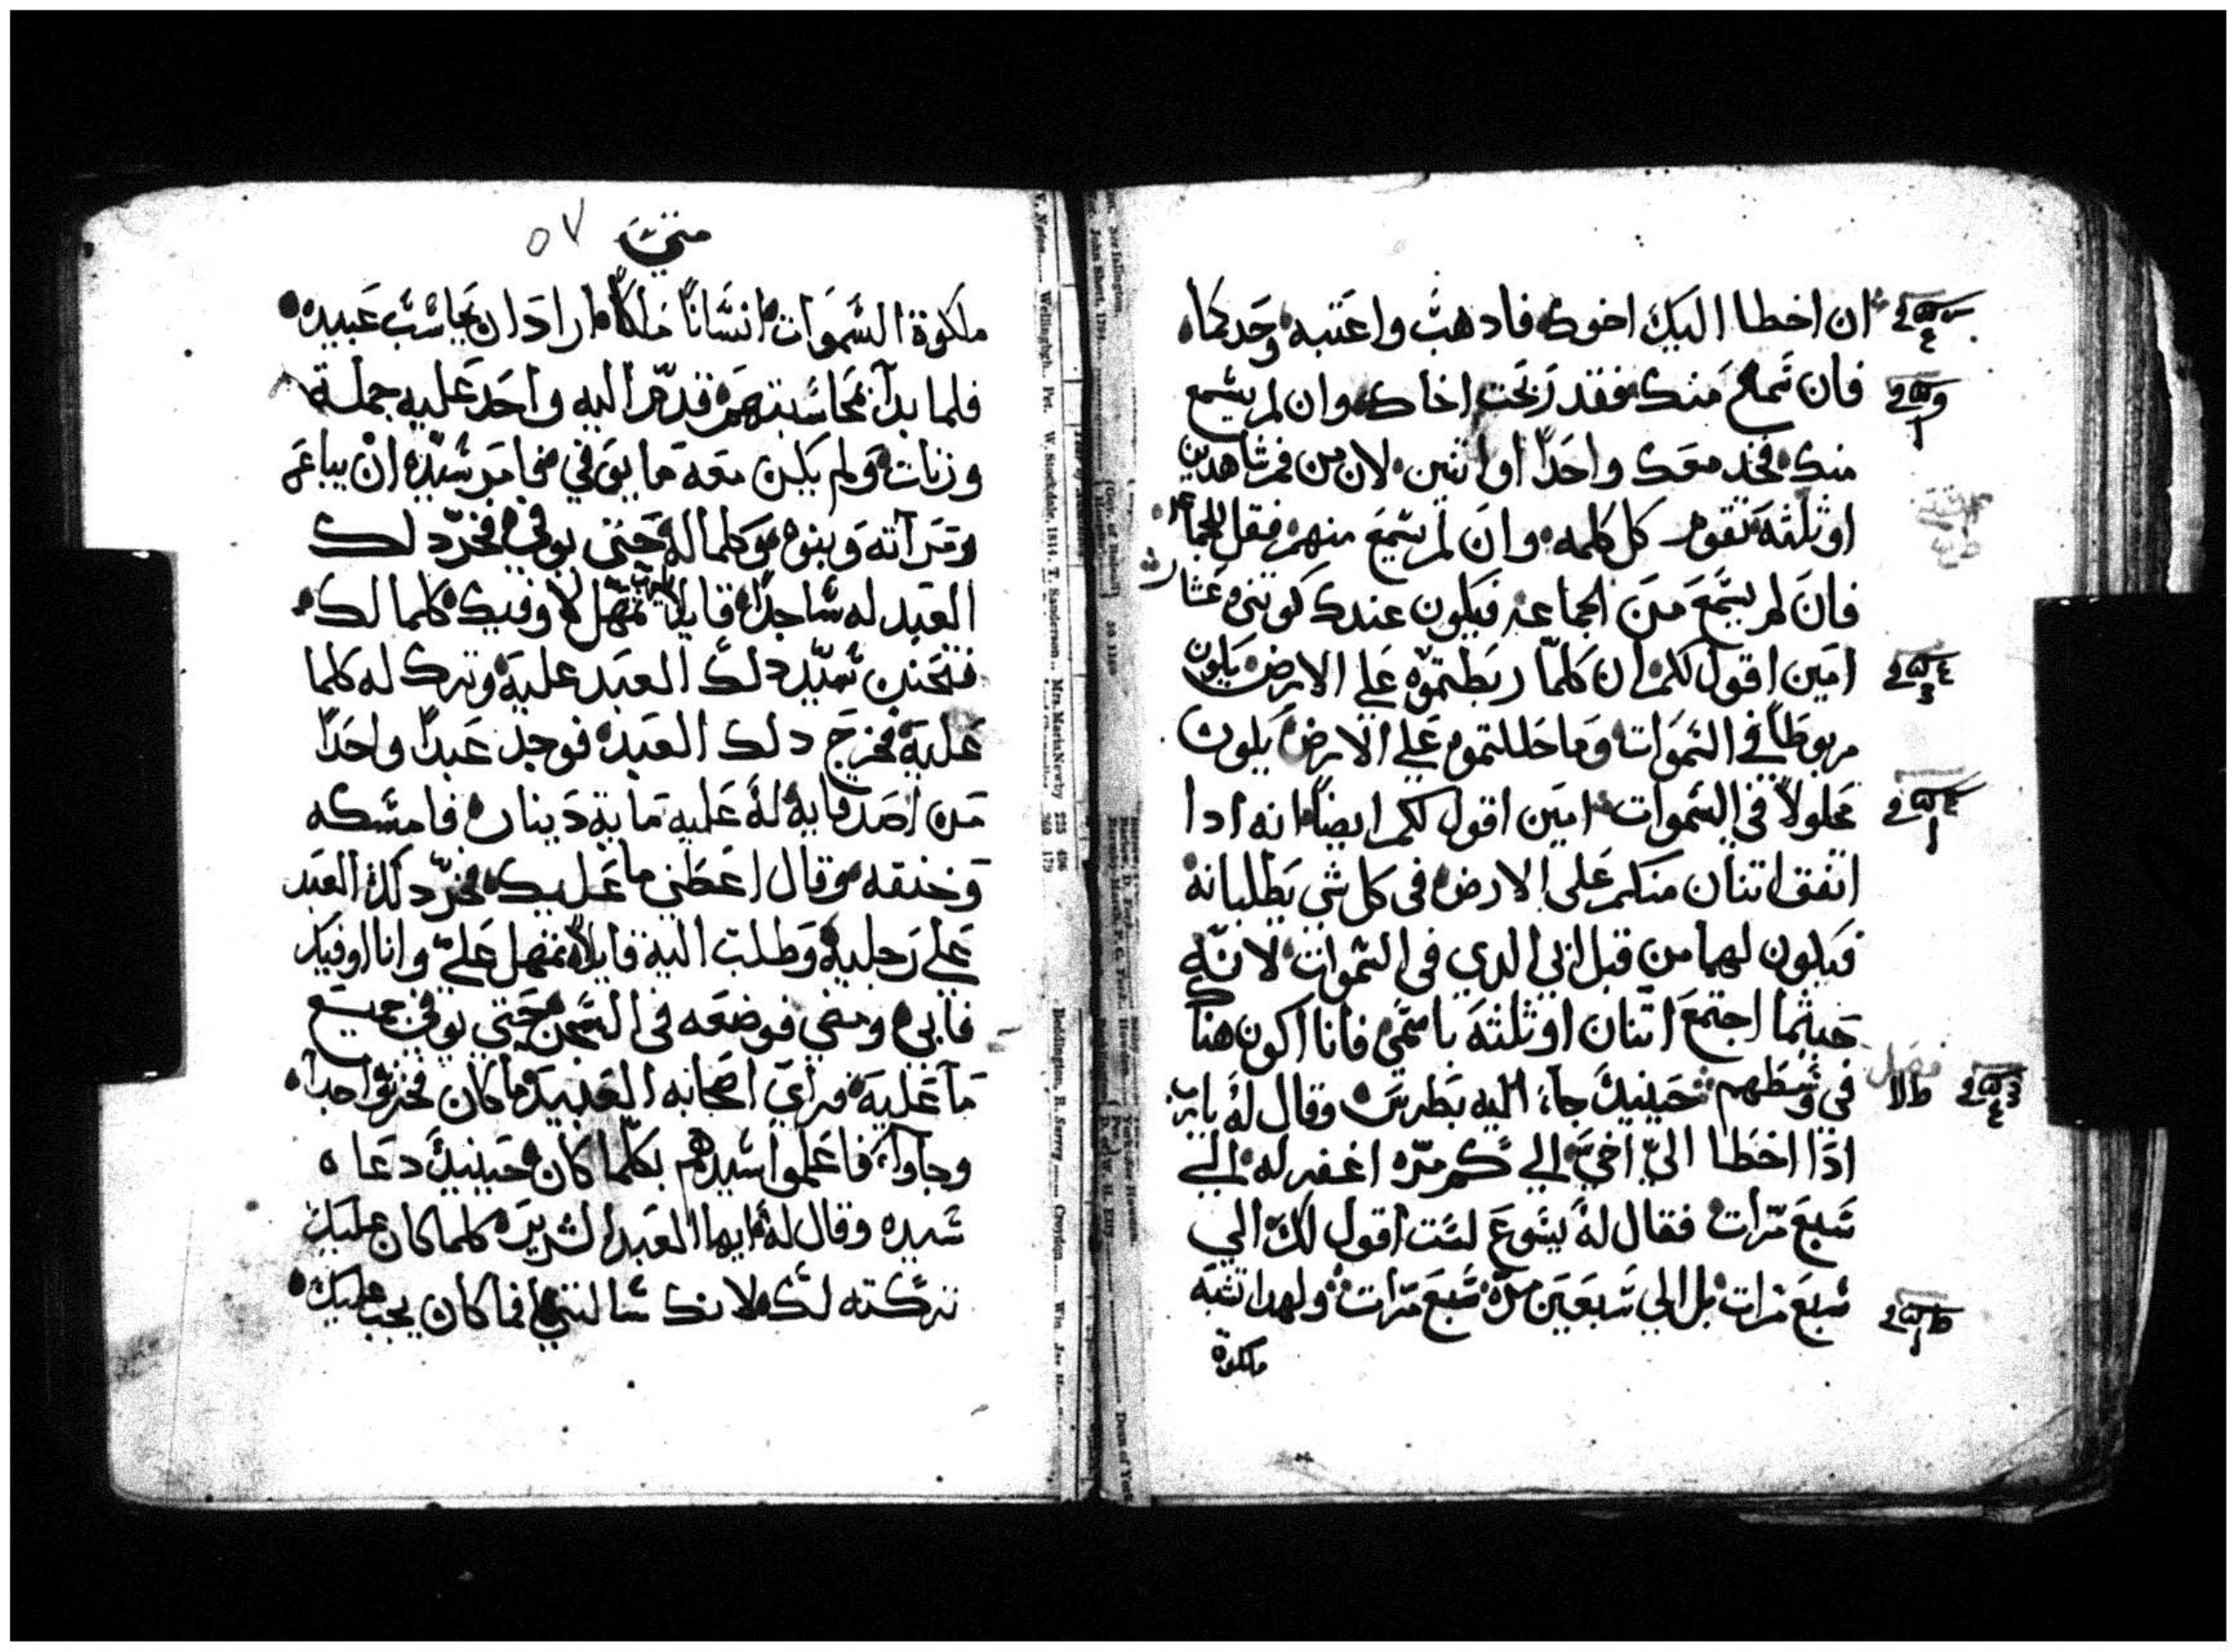 ان اخطا اليك اخوك فادهب واعتبه وحدكما
فان سمع منك فقد ربحت اخاك وان لم يسمع
منك فخد معك واحدًا او اتنين لان من فم شاهدين
او ثلثة تقوم كل كلمه وان لم يسمع منهم فقل للجماعه
فان لم يسمع من الجماعه فيكون عندك كوتني وعشار
امين اقول لكم ان كلمّا ربطتموه علي الارض يكون
مربوطًا في السموات وما حللتموه علي الارض يكون
محلولاً في السموات امين اقول لكم ايضًا انه ادا
اتفق اتنان منكم علي الارض في كل شي يطلبانه
فيكون لهما من قبل ابي الدي في السموات لانّه
حيثما اجتمع اتنان او ثلثة باسمي فانا اكون هناك
في وسطهم حينيدٍ جاء اليه بطرس وقال له يارب
ادا اخطا اليّ اخي الي كم مرّه اغفر له الي
سبع مرّات فقال له يسوع لست اقول لك الي
سبع مرات بل الي سبعين مرّة سبع مرّات ولهدا تشبه
ملكوة
متي
٥٧
ملكوة السموات انسانًا ملكًا اراد ان يحاسب عبيده
فلما بدا بمحاسبتهم قدّم اليه واحد عليه جملة
وزنات ولم يكن معه ما يوفي فامر سيّده ان يباع هو
ومرآته وبنوه وكلما له حتي يوفي فخرّ دلك
العبد له ساجدًا قايلاً تمهّل لاوفيك كلما لك
فتحنن سيّد دلك العبد عليه وترك له كلما
عليه فخرج دلك العبد فوجد عبدًا واحدًا
من اصدقايه له عليه ماية دينار فامسكه
وخنقه وقال اعطني ما عليك فخرّ دلك العبد
علي رجليه وطلب اليه قايلاً تمهل عليّ وانا اوفيك
فابي ومضي فوضعه في السجن حتي يوفي جميع
ما عليه فراي اصحابه العبيد ما كان فحزنوا جدًا
وجاوا فاعلموا سيدهم بكلّما كان حينيدٍ دعاه
سيده وقال له ايها العبد الشرير كلما كان عليك
تركته لك لانك سالتني افما كان يجب عليك